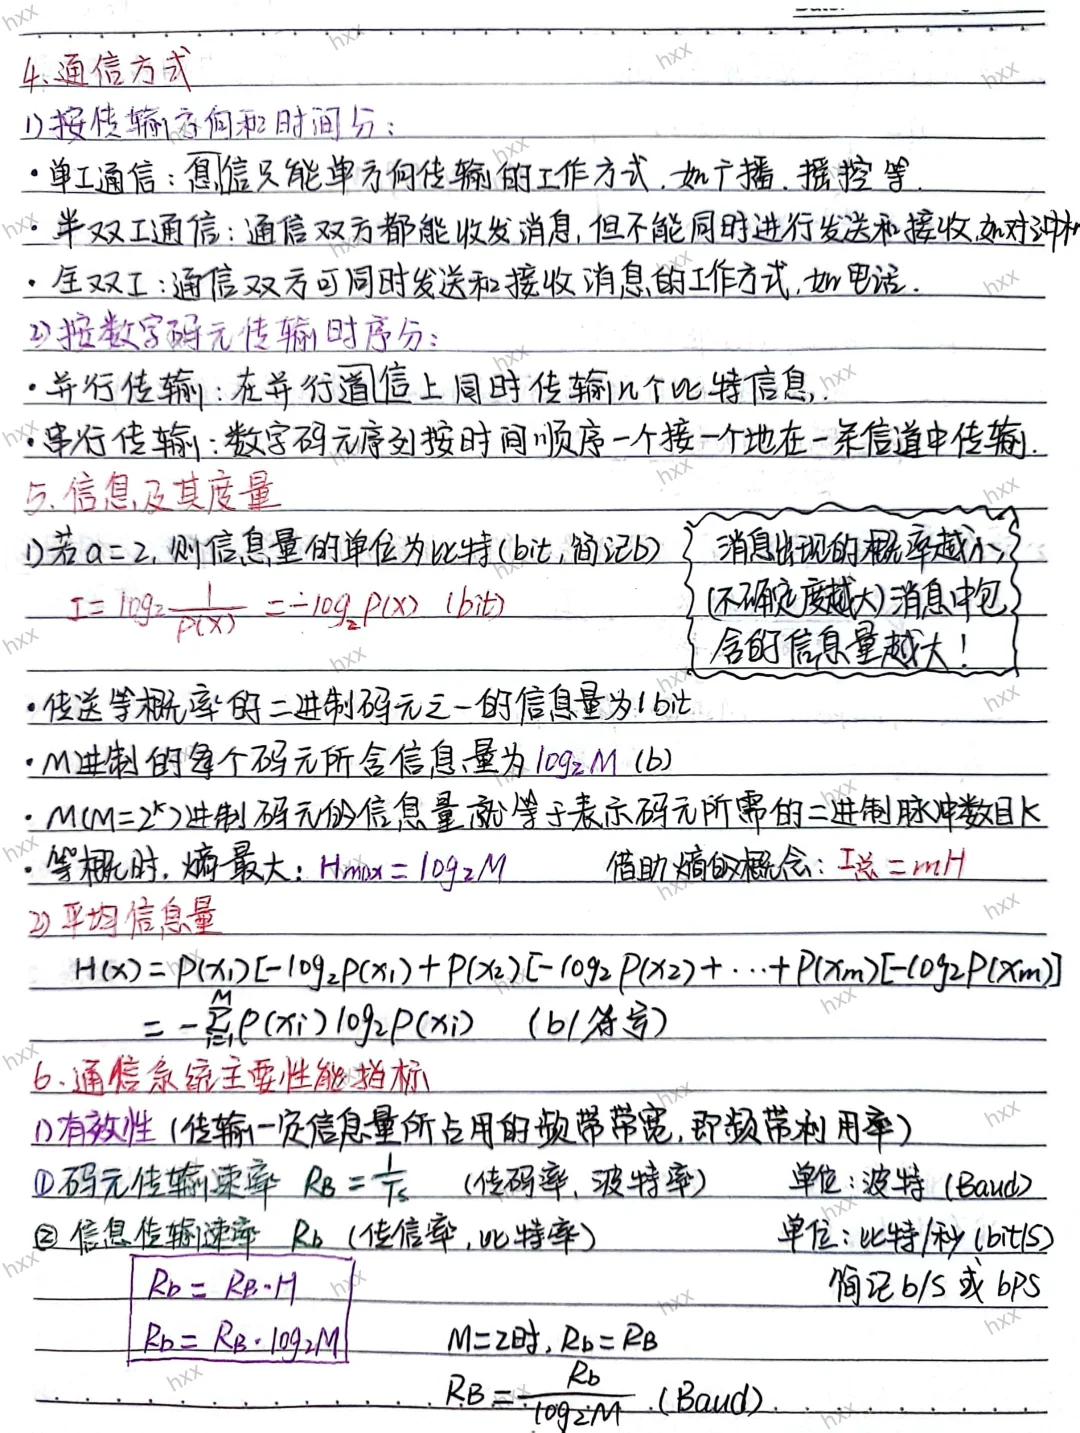 4、通信方式
1)按传输方向和时间分:
·单工通信:息信只能单方向传输的工作方式,如广播、摇控等.
·半双工通信:通信双方都能收发消息,但不能同时进行发送和接收,如对讲机
·全双工:通信双方可同时发送和接收消息的工作方式,如电话.
2)按数字码元传输时序分:
·并行传输:在并行道信上同时传输几个比特信息.
·串行传输:数字码元序列按时间顺序一个接一个地在一条信道中传输.
5.信息及其度量
1)若a=2,则信息量的单位为比特(bit,简记b)
I=log₂ 1/P(X) =-log₂P(X) (bit)
消息出现的概率越小,
(不确定度越大)消息中包
含的信息量越大!
·传送等概率的二进制码元之一的信息量为1bit
·M进制的每个码元所含信息量为log₂M (b)
·M(M=2ᴷ)进制码元的信息量就等于表示码元所需的二进制脉冲数目K
·等概时,熵最大:Hmax=log₂M 借助熵的概念:I总=mH
2)平均信息量
H(x)=P(x₁)[-log₂P(x₁)+P(x₂)[-log₂P(x₂)+···+P(xm)[-log₂P(xm)]
=-∑ᴹᵢ₌₁P(xi)log₂P(xi) (b/符号)
6.通信系统主要性能指标
1)有效性(传输一定信息量所占用的频带带宽,即频带利用率)
①码元传输速率 RB=1/Ts (传码率,波特率) 单位:波特(Baud)
②信息传输速率 Rb(传信率,比特率) 单位:比特/秒(bit/S)
简记b/S或bPS
Rb=RB·H
Rb=RB·log₂M
M=2时,Rb=RB
RB=Rb/log₂M (Baud)
hxx